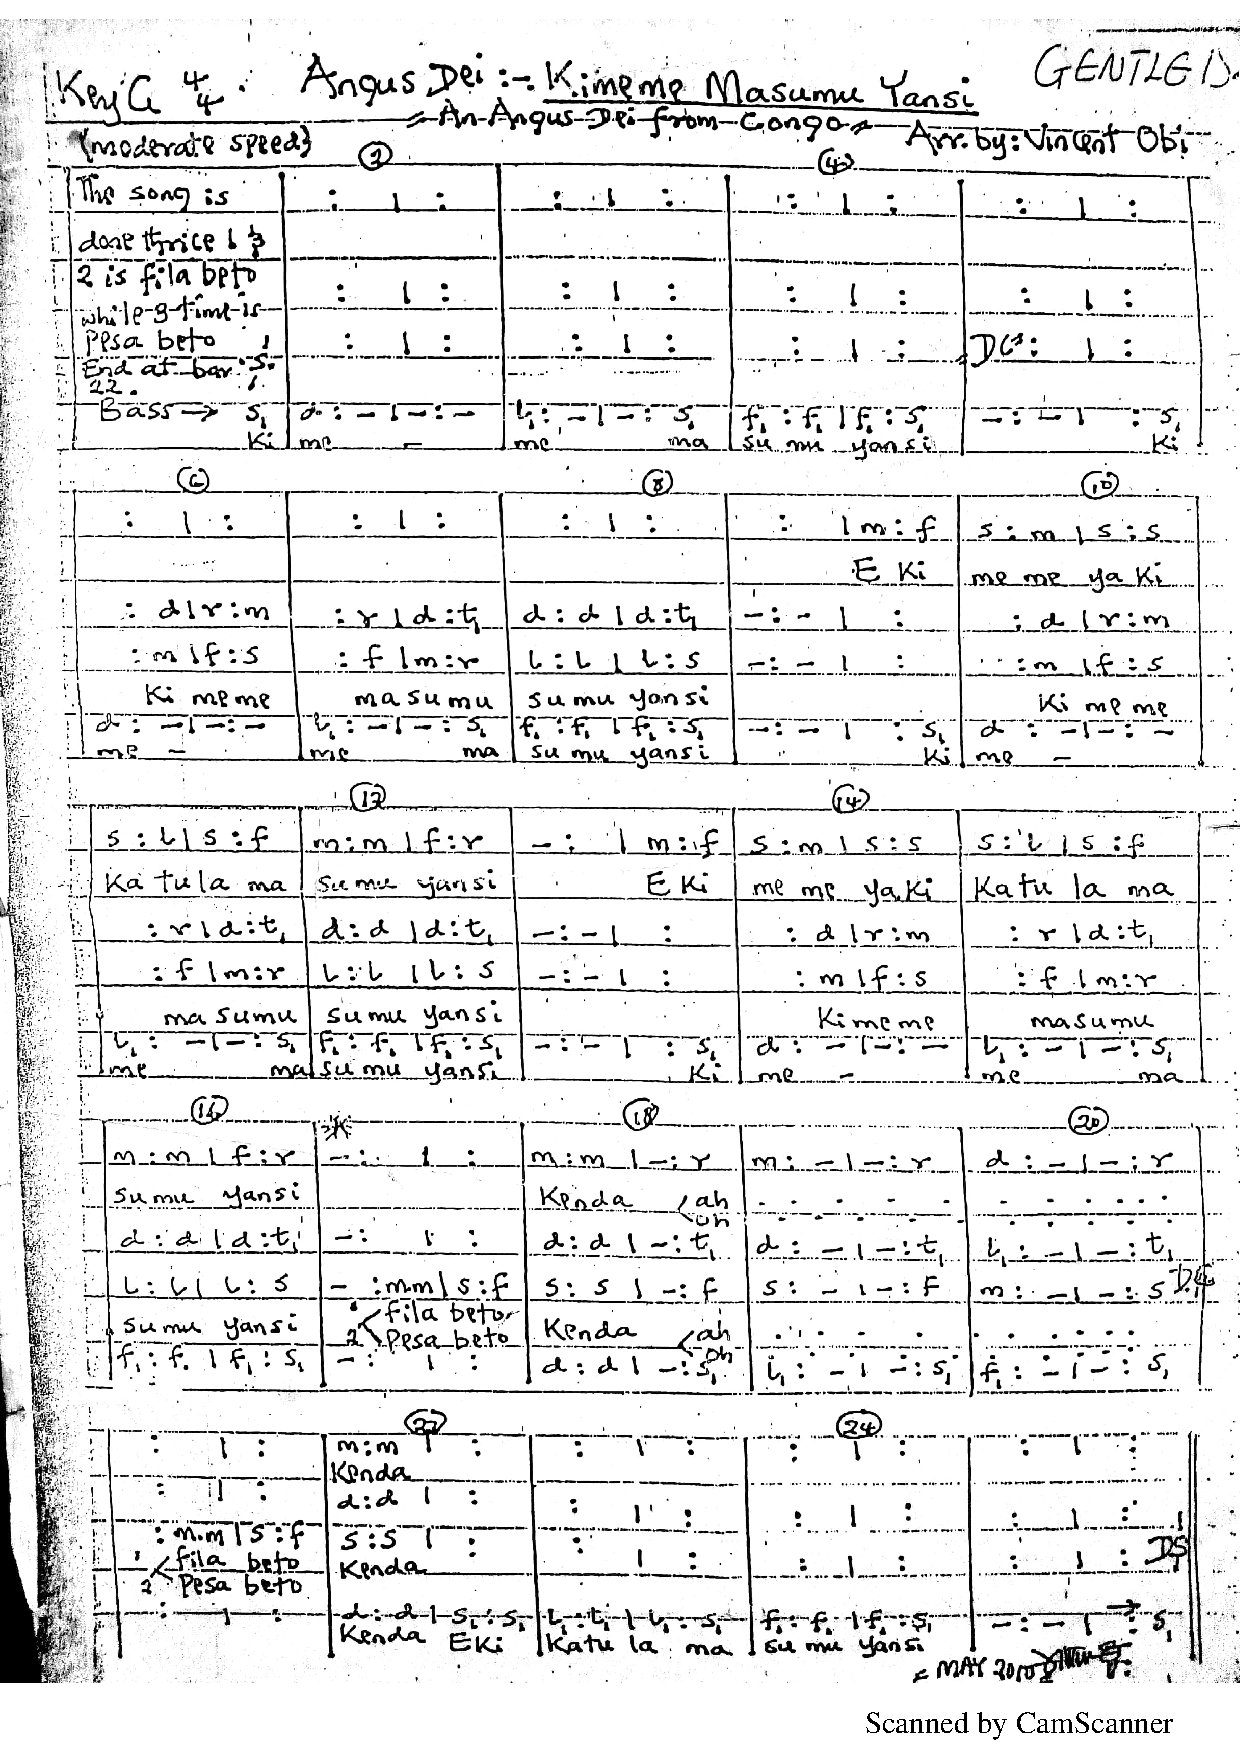 Key G 4/4. Angus Dei :- Kimeme Masumu Yansi GENTLE D.
= An Angus Dei from Congo = Arr. by: Vincent Obi
(moderate speed)
2 4
The song is : | : : | : : | : : | :
done thrice 1 &
2 is fila beto : | : : | : : | : : | :
while 3 time is
Pesa beto : | : : | : : | : DC : | :
End at bar :s,
22.
Bass → s, d : – | – : – l, : – | – : s, f, : f, | f, : s, – : – | : s,
Ki me – me ma su mu yansi Ki
6 8 10
: | : : | : : | : : | m : f s : m | s : s
E Ki me me ya Ki
: d | r : m : r | d : t, d : d | d : t, – : – | : : d | r : m
: m | f : s : f | m : r l : l | l : s – : – | : : m | f : s
Ki meme masumu sumu yansi Ki meme
d : – | – : – l, : – | – : s, f, : f, | f, : s, – : – | : s, d : – | – : –
me – me ma su mu yansi Ki me –
12 14
s : l | s : f m : m | f : r – : | m : f s : m | s : s s : l | s : f
Ka tu la ma sumu yansi E Ki me me ya Ki Katu la ma
: r | d : t, d : d | d : t, – : – | : : d | r : m : r | d : t,
: f | m : r l : l | l : s – : – | : : m | f : s : f | m : r
ma sumu sumu yansi Ki meme masumu
l, : – | – : s, f, : f, | f, : s, – : – | : s, d : – | – : – l, : – | – : s,
me ma su mu yansi Ki me – me ma
16 18 20
m : m | f : r – : | : m : m | – : r m : – | – : r d : – | – : r
sumu yansi Kenda ah
oh
d : d | d : t, – : | : d : d | – : t, d : – | – : t, l, : – | – : t,
l : l | l : s – : mm | s : f s : s | – : f s : – | – : f m : – | – : s DC
sumu yansi fila beto Kenda ah
2 Pesa beto oh
f, : f, | f, : s, – : | : d : d | – : s, l, : – | – : s, f, : – | – : s,
22 24
: | : m : m | : : | : : | : : | :
Kenda
: | : d : d | : : | : : | : : | :
: m.m | s : f s : s | : : | : : | : : | : DS
1 fila beto Kenda
2 Pesa beto
: | : d : d | s, : s, l, : t, | l, : s, f, : f, | f, : s, – : – | : s,
Kenda E Ki Katu la ma su mu yansi
= MAY 2010
Scanned by CamScanner